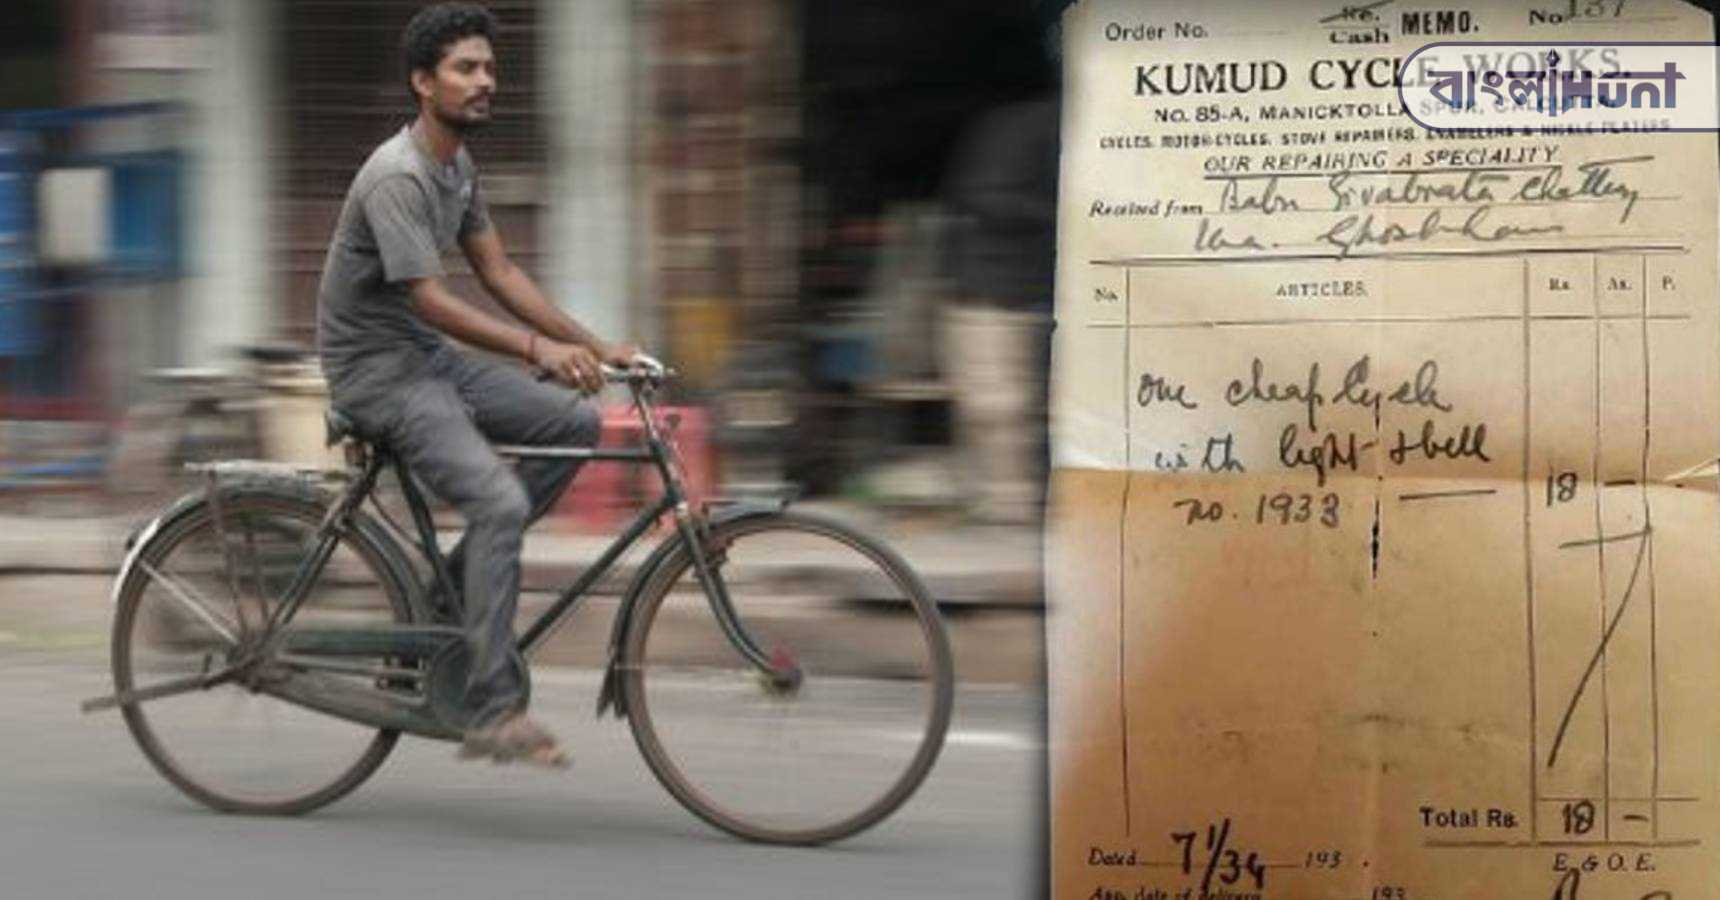 Order No.
Re.
Cash MEMO. No. 
KUMUD CYCLE WORKS.
বাংলাHunt
No. 85-A, MANICKTOLLA SPUR, CALCUTTA.
CYCLES, MOTOR-CYCLES, STOVE REPAIRERS, ENAMELERS & NICKLE PLATERS
OUR REPAIRING A SPECIALITY
Received from Babu Sivabrata
No. ARTICLES. Rs. As. P.
one cheap Cycle
with light & bell
no. 1933 — 18 —
Total Rs. 18 —
Dated 7/1/34 193 .
E. & O. E.
193